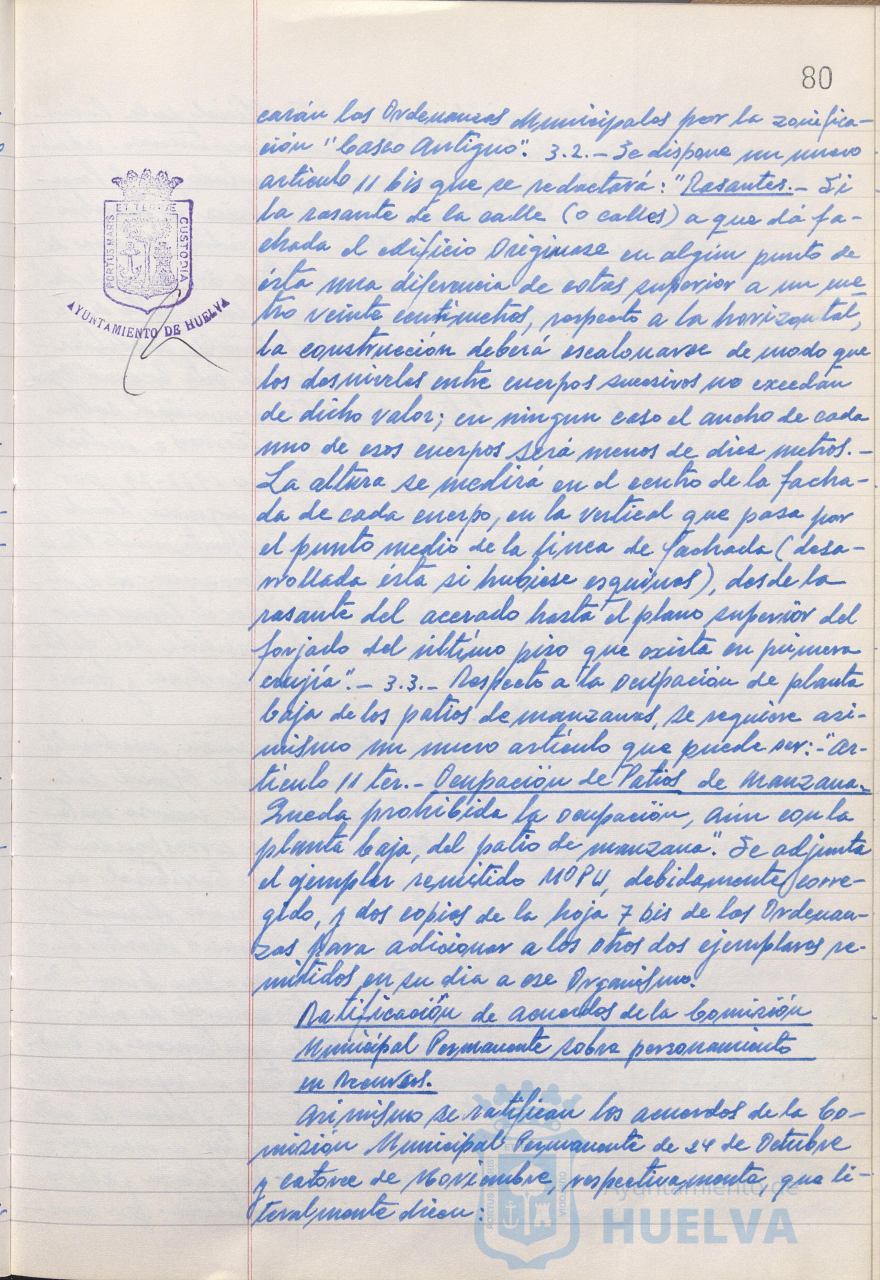 80
carán las Ordenanzas Municipales por la zonifica-
ción "Casco Antiguo". 3.2.- Se dispone un nuevo
artículo 11 bis que se redactará: "Rasantes.- Si
la rasante de la calle (o calles) a que dá fa-
chada el edificio Originase en algún punto de
ésta una diferencia de cotas superior a un me-
tro veinte centímetros, respecto a la horizontal,
la construcción deberá escalonarse de modo que
los desniveles entre cuerpos sucesivos no excedan
de dicho valor; en ningun caso el ancho de cada
uno de esos cuerpos será menos de diez metros.-
La altura se medirá en el centro de la facha-
da de cada cuerpo, en la vertical que pasa por
el punto medio de la finca de fachada (desa-
rrollada ésta si hubiese esquinas), desde la
rasante del acerado hasta el plano superior del
forjado del último piso que exista en primera
crujía".- 3.3.- Respecto a la ocupación de planta
baja de los patios de manzanas, se requiere asi-
mismo un nuevo artículo que puede ser:-"Ar-
tículo 11 ter.- Ocupación de Patios de manzana.
Queda prohibida la ocupación, aún con la
planta baja, del patio de manzana". Se adjunta
el ejemplar remitido MOPU, debidamente corre-
gido, y dos copias de la hoja 7 bis de las Ordenan-
zas para adicionar a los otros dos ejemplares re-
mitidos en su dia a ese Organismo.
Ratificación de acuerdos de la Comisión
Municipal Permanente sobre personamiento
en Recursos.
Asimismo se ratifican los acuerdos de la Co-
misión Municipal Permanente de 24 de Octubre
y catorce de Noviembre, respectivamente, que li-
teralmente dicen:
PORTUS MARIS ET TERRE CUSTODIA
AYUNTAMIENTO DE HUELVA
Ayuntamiento de
HUELVA